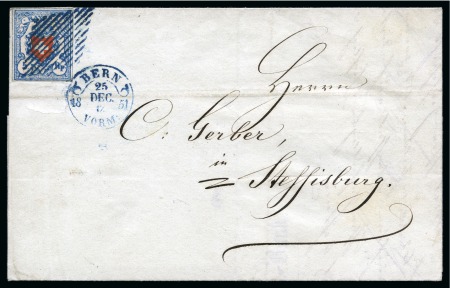 BERN
25
DEC.
18 51
VORM.
Herrn
C: Gerber,
in
Steffisburg.